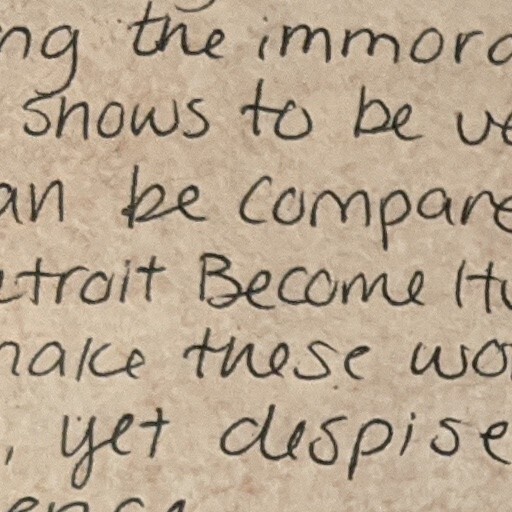 ng the immora
shows to be ve
an be compare
etroit Become Hu
make these wo
, yet despise
ence